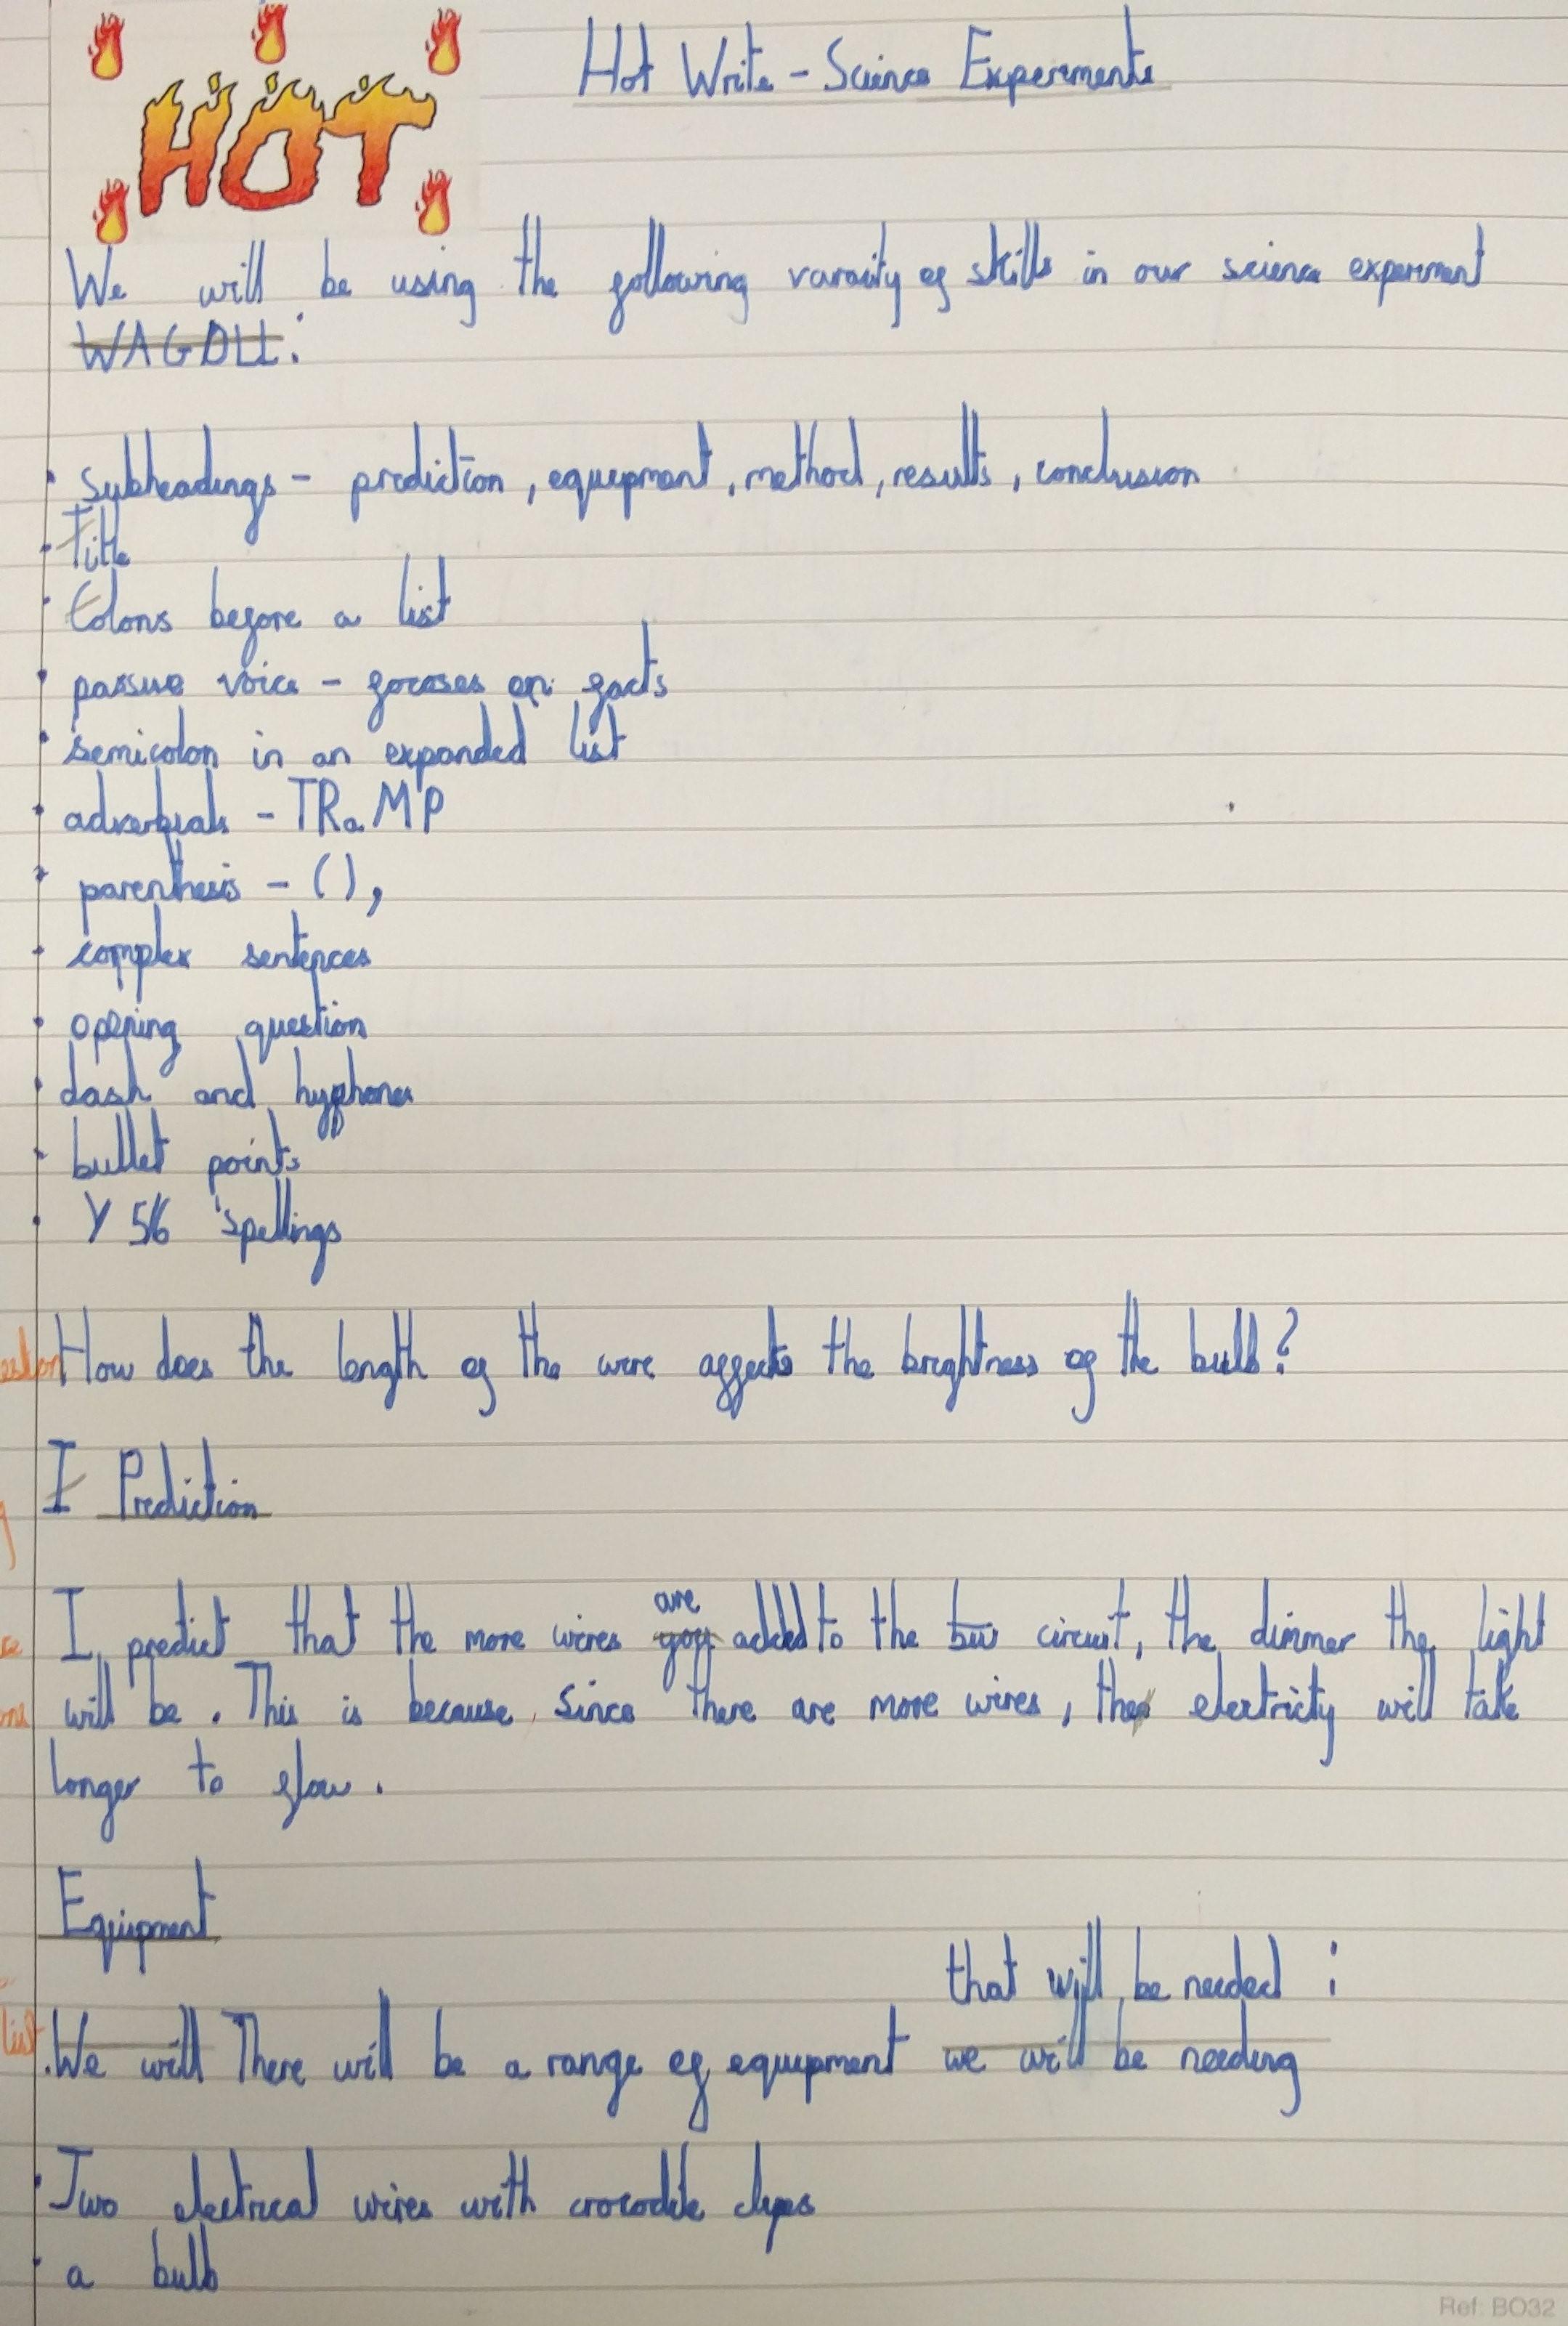 HOT
Hot Write - Science Experements
We will be using the following varacity of skills in our science experement
WAGOLL:
subheadings - prediction, equipment, method, results, conclusion
Title
Colons before a list
passive voice - focoses on facts
semicolon in an expanded list
adverbials - TRaMP
parenthesis - (),
complex sentences
opening question
dash and hyphones
bullet points
Y 5/6 spellings
How does the length of the wire affects the brightness of the bulb?
I Prediction
are
I predict that the more wires you added to the circuit, the dimmer the light
will be. This is because, since there are more wires, the electricity will take
longer to flow.
Equipment
that will be needed :
list
We will There will be a range of equipment we will be needing
Two electrical wires with crocodile clips
a bulb
Ref: BO32